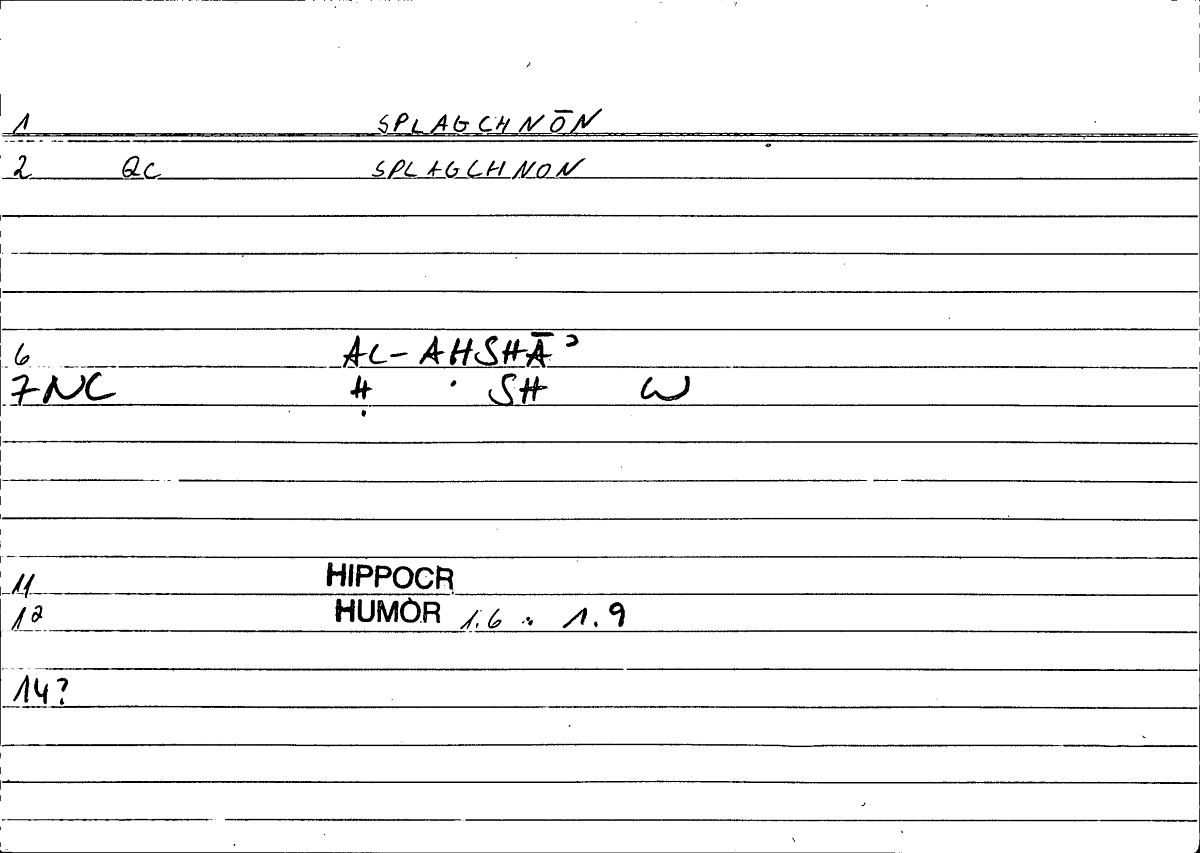 1 SPLAGCHNŌN
2 QC SPLAGCHNON
6 AL-AHSHĀʾ
7 NC Ḥ SH W
11 HIPPOCR
12 HUMOR 1.6 : 1.9
14?